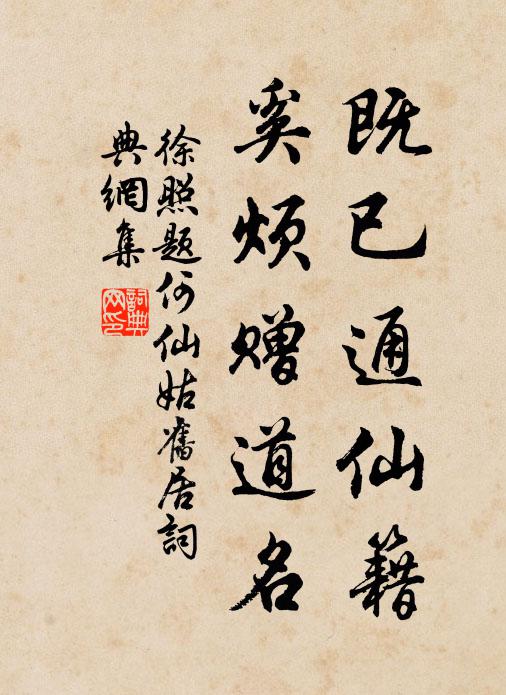 既已通仙籍
奚烦赠道名
徐照题何仙姑舊居詞
典網集
詞典網印